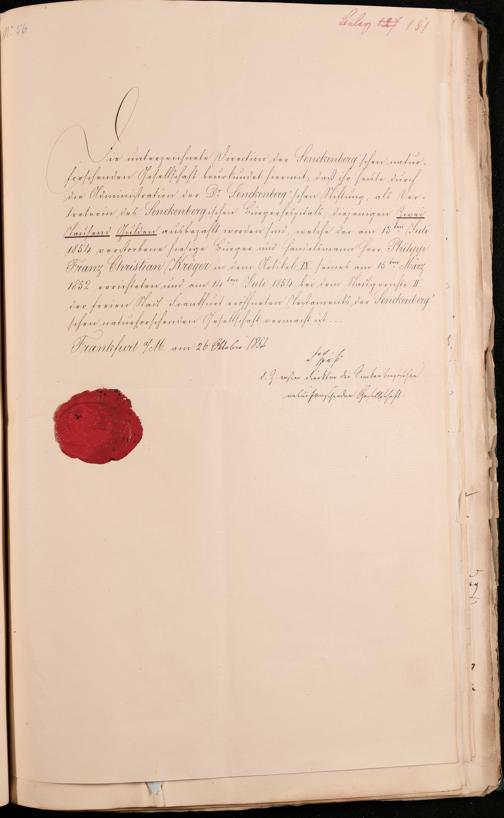 No 56
Beleg 127 181
Die unterzeichnete Direction der Senckenberg'schen natur-
forschenden Gesellschaft beurkundet hiermit, daß ihr heute durch
die Administration der Dr. Senckenberg'schen Stiftung, als Ver-
treterin des Senckenbergischen Bürgerhospitals, diejenigen Zwei
Tausend Gulden ausbezahlt worden sind, welche der am 13ten Juli
1854 verstorbene hiesige Bürger und Handelsmann Herr Philipp
Franz Christian Kröger in dem Artikel IV seines am 15ten März
1852 errichteten und am 14ten Juli 1854 bei dem Stadtgerichte II
der freien Stadt Frankfurt eröffneten Testaments der Senckenberg'
schen naturforschenden Gesellschaft vermacht ist.
Frankfurt a/M. am 26 Oktober
d. Z. erster Direktor der Senckenbergischen
naturforschenden Gesellschaft.